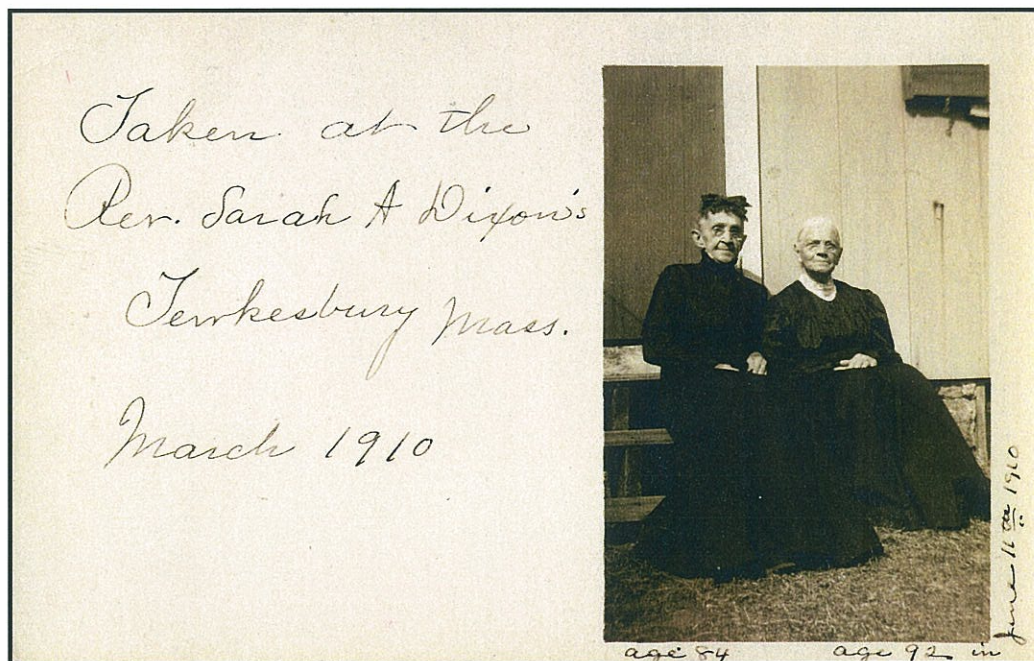 Taken at the
Rev. Sarah A Dixon's
Tewkesbury Mass.
March 1910
age 84
age 92 in
June 11th 1910